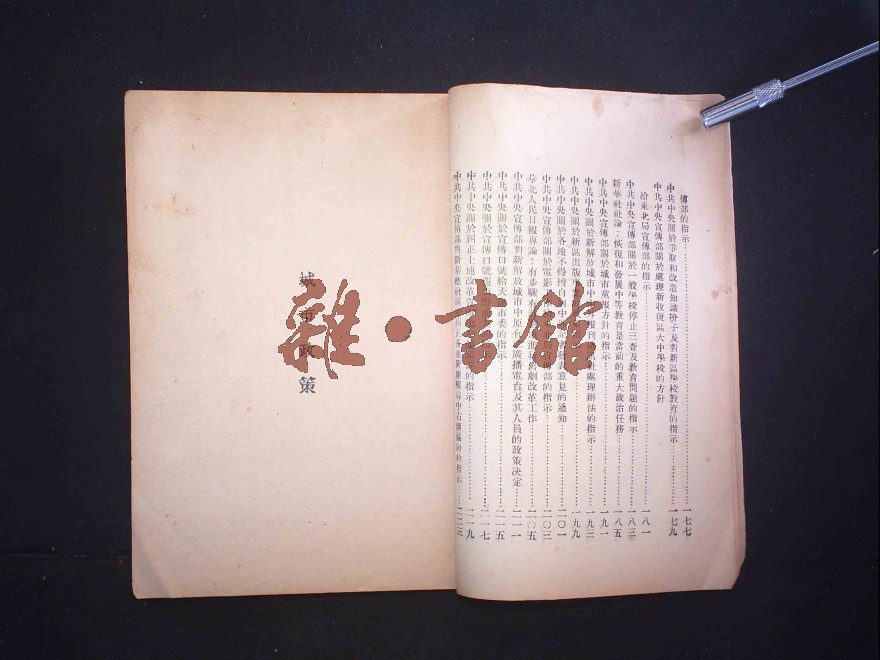 傳部的指示……一七七
中共中央關於爭取和改造知識份子及對新區學校教育的指示……一七九
中共中央宣傳部關於處理新收復區大中學校的方針
給東北局宣傳部的指示……一八一
中共中央宣傳部關於一般學校停止三查及教育問題的指示……一八三
新華社社論：恢復和發展中等教育是當前的重大政治任務……一八五
中共中央宣傳部關於城市黨報方針的指示……一九一
中共中央關於新解放城市中 報刊 社處理辦法的指示……一九三
中共中央關於新區出版 的指示……一九九
中共中央關於各地不得擅自 中 意見的通知……二〇一
中共中央宣傳部關於電影 宣傳部的指示……二〇三
華北人民日報專論：有步驟 舊劇改革工作……二〇五
中共中央宣傳部對新解放城市中原有 廣播電台及其人員的政策決定……二一一
中共中央關於宣傳口號給天 市委的指示……二一五
中共中央關於宣傳口號 ……二一七
中共中央關於糾正土地改革宣 的指示……二一九
中共中央宣傳部與新華總社 各地新 中右傾偏向的指示……二二三
城市政策
雜·書館